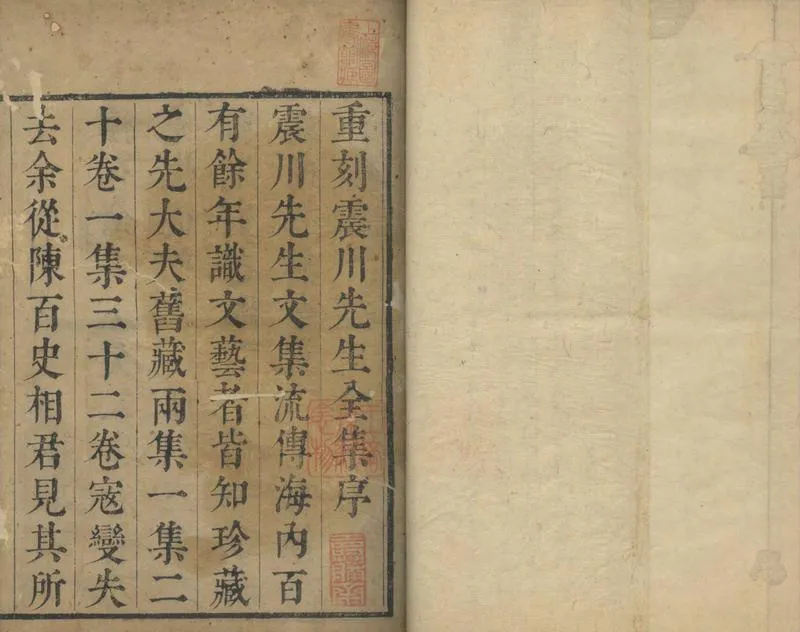 重刻震川先生全集序
震川先生文集流傳海內百
有餘年識文藝者皆知珍藏
之先大夫舊藏兩集一集二
十卷一集三十二卷寇變失
去余從陳百史相君見其所